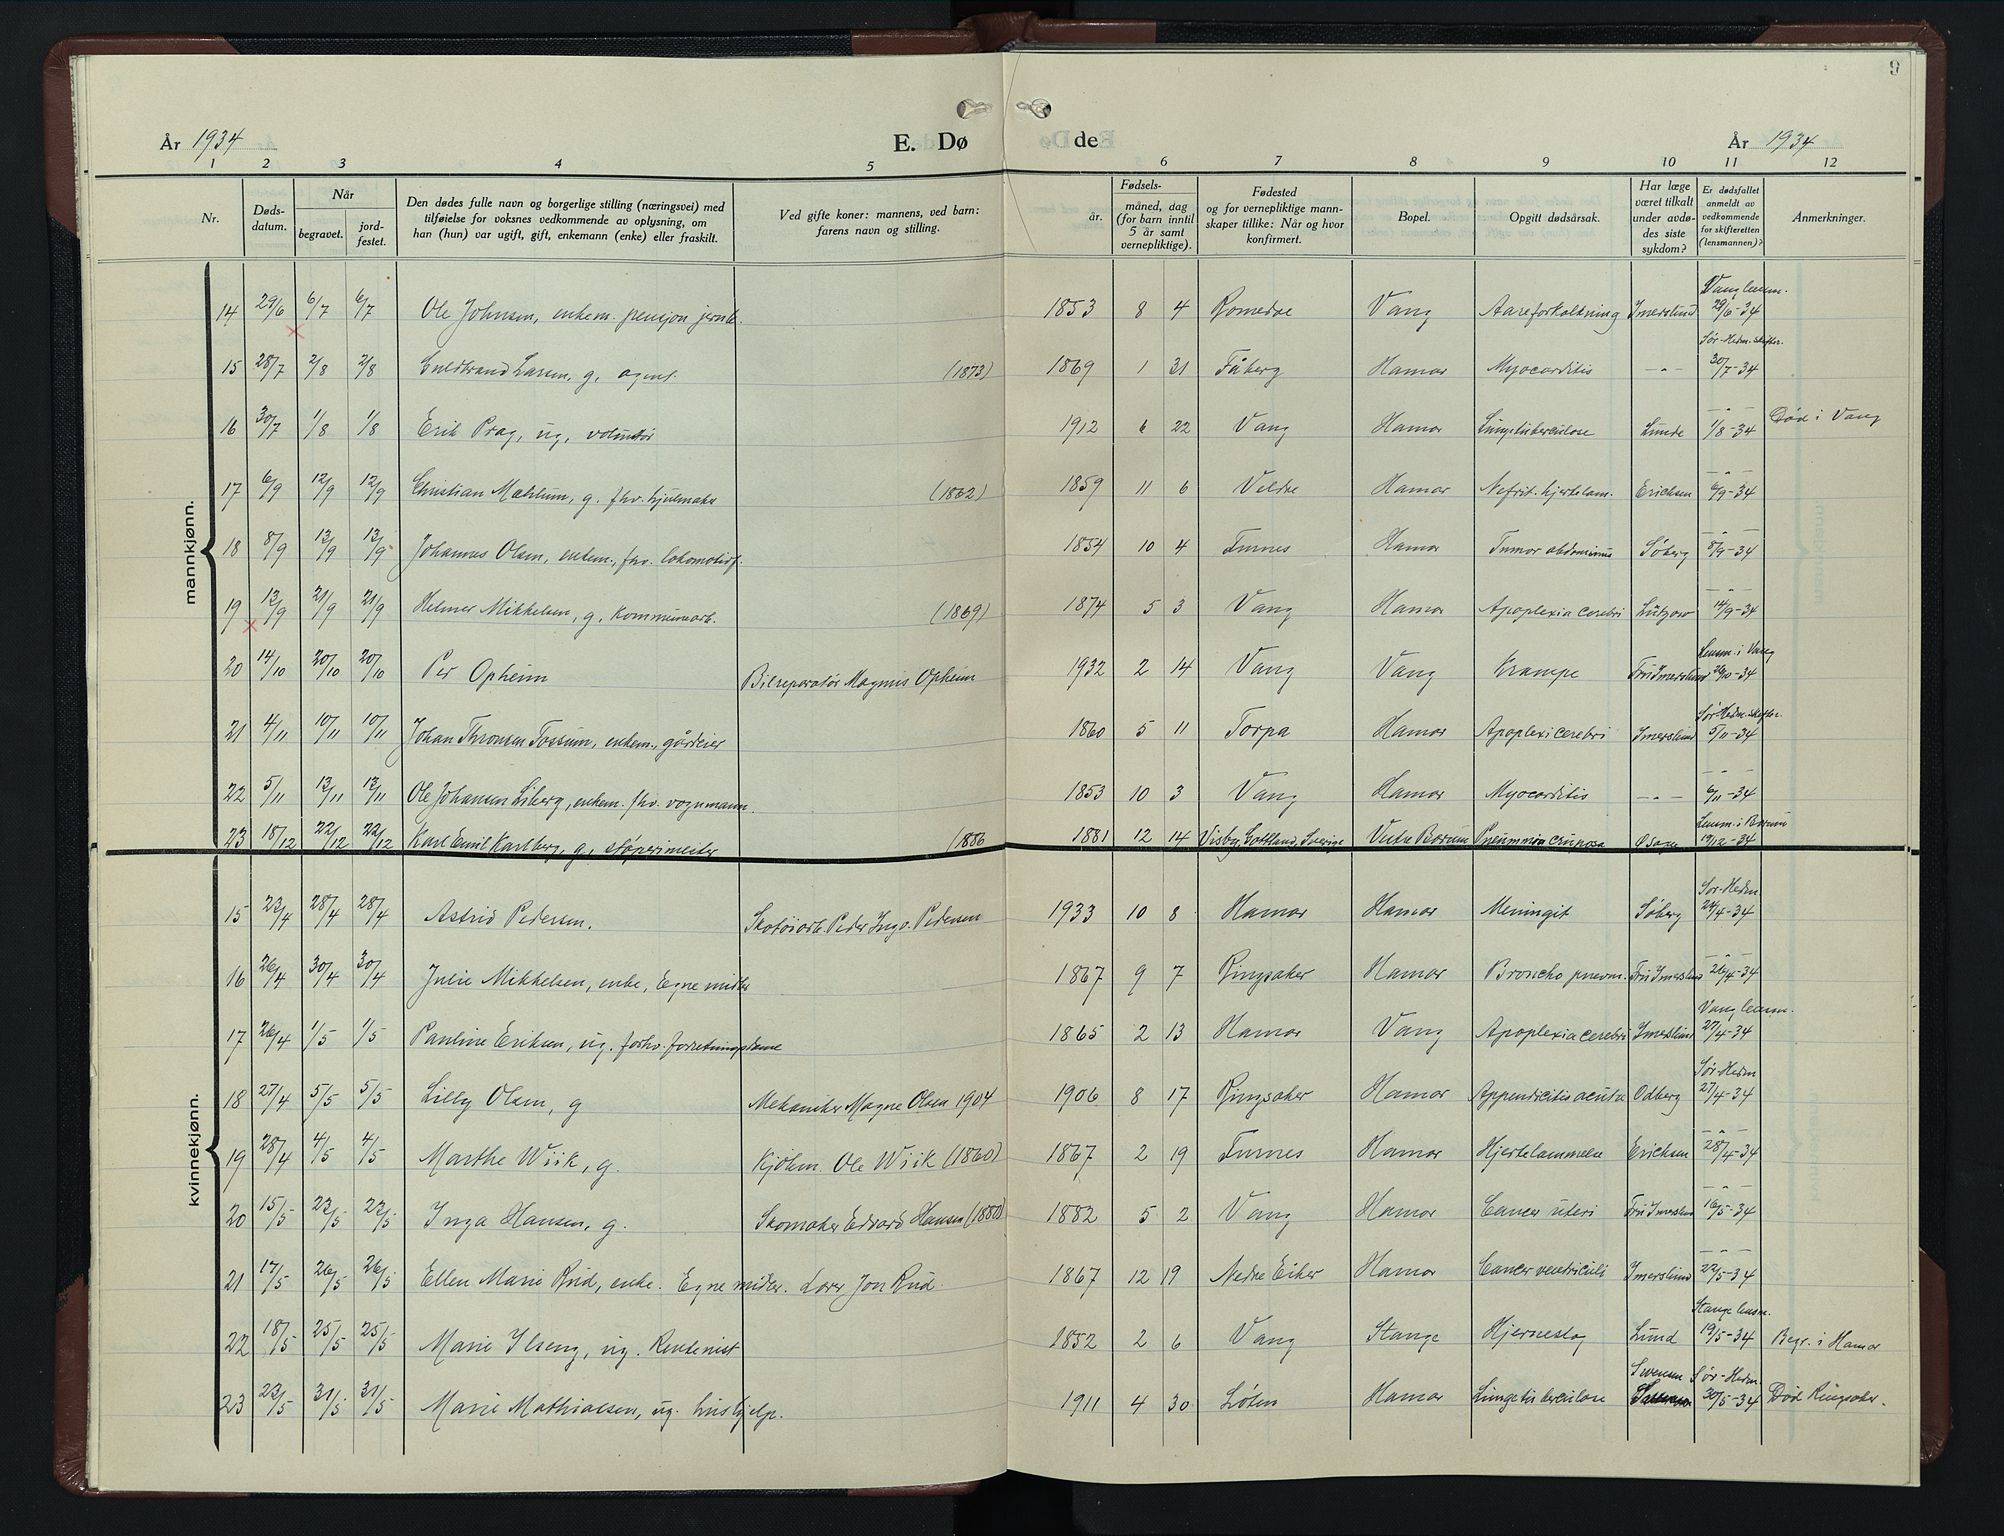 9
År 1934 E. Dø de År 1934
1 2 3 4 5 6 7 8 9 10 11 12
Nr.
Døds-
datum.
Når
begravet.
jord-
festet.
Den dødes fulle navn og borgerlige stilling (næringsvei) med
tilføielse for voksnes vedkommende av oplysning, om
han (hun) var ugift, gift, enkemann (enke) eller fraskilt.
Ved gifte koner: mannens, ved barn:
farens navn og stilling.
Fødsels-
år.
måned, dag
(for barn inntil
5 år samt
vernepliktige).
Fødested
og for vernepliktige mann-
skaper tillike: Når og hvor
konfirmert.
Bopel.
Opgitt dødsårsak.
Har læge
været tilkalt
under avdø-
des siste
sykdom?
Er dødsfallet
anmeldt av
vedkommende
for skifteretten
(lensmannen)?
Anmerkninger.
mannkjønn.
14 29/6 6/7 6/7 Ole Johnsen, enkem. pensjon jernb. 1853 8 4 Romedae Vang Aareforkalkning Imerslund Vang lensm. 29/6-34
15 28/7 2/8 2/8 Guldbrand Larsen, g, agent. (1873) 1869 1 31 Fåberg Hamar Myocarditis -"- Sør-Hedm. skifter. 30/7-34
16 30/7 1/8 1/8 Erik Prag, ug, voluntør 1912 6 22 Vang Hamar Lungetuberculose Lunde -"- 1/8-34 Død i Vang
17 6/9 12/9 12/9 Christian Mæhlum, g. fhv. hjulmaker (1862) 1859 11 6 Veldre Hamar Nefrit. hjertelam. Erichsen -"- 6/9-34
18 8/9 13/9 13/9 Johannes Olsen, enkem., fhv. lokomotivf. 1854 10 4 Furnes Hamar Tumor abdominus Søberg -"- 8/9-34
19 13/9 21/9 21/9 Helmer Mikkelsen, g, kommunearb. (1869) 1874 5 3 Vang Hamar Apoplexia cerebri Lützow -"- 14/9-34
20 14/10 20/10 20/10 Per Opheim Bilreparatør Magnus Opheim 1932 2 14 Vang Vang Krampe Fru Imerslund Lensm. i Vang 16/10-34
21 4/11 10/11 10/11 Johan Thronsen Tossum, enkem., gårdeier 1860 5 11 Torpa Hamar Apoplexi cerebri Imerslund Sør Hedm. skifter. 5/11-34
22 5/11 13/11 13/11 Ole Johansen Liberg, enkem. fhv. vognmann 1853 10 3 Vang Hamar Myocarditis -"- -"- 6/11-34
23 18/12 22/12 22/12 Karl Emil Karlberg, g, støperimester (1886 1881 12 14 Visby, Gottland, Sverige Vestre Bærum Pneumonia cruposa Lensm. i Bærum 19/12-34
kvinnekjønn.
15 23/4 28/4 28/4 Astrid Pedersen. Skotøiarb. Peder Ingv. Pedersen 1933 10 8 Hamar Hamar Meningit Søberg Sør-Hedm 24/4-34
16 26/4 30/4 30/4 Julie Mikkelsen, enke, Egne midler 1867 9 7 Ringsaker Hamar Broncho pneum. Fru Imerslund -"- 26/4-34
17 26/4 1/5 1/5 Pauline Eriksen, ug. forhv. forretningsdame 1865 2 13 Hamar Vang Apoplexia cerebri Imerslund Vang lensm. 27/4-34
18 27/4 5/5 5/5 Lilly Olsen, g Mekaniker Magne Olsen 1904 1906 8 17 Ringsaker Hamar Appendicitis acuta Odberg Sør-Hedm 27/4-34
19 28/4 4/5 4/5 Marthe Wiik, g. Kjøbm. Ole Wiik (1860) 1867 2 19 Furnes Hamar Hjertelammelse Erichsen -"- 28/4-34
20 15/5 23/5 23/5 Inga Hansen, g. Skomaker Edvard Hansen (1880) 1882 5 2 Vang Hamar Cancer uteri Fru Imerslund -"- 16/5-34
21 17/5 26/5 26/5 Ellen Marie Rud, enke. Egne midler. Lærer Jon Rud. 1867 12 19 Nedre Eiker Hamar Cancer ventriculi Imerslund -"- 22/5-34
22 18/5 25/5 25/5 Marie Ilseng, ug. Rentenist 1852 2 6 Vang Stange Hjerneslag Lund Stange lensm. 19/5-34 Begr. i Hamar
23 23/5 31/5 31/5 Marie Mathiassen, ug. hushjelp. 1911 4 30 Løten Hamar Lungetuberculose Svensen Sør-Hedm 30/5-34 Død Ringsaker.